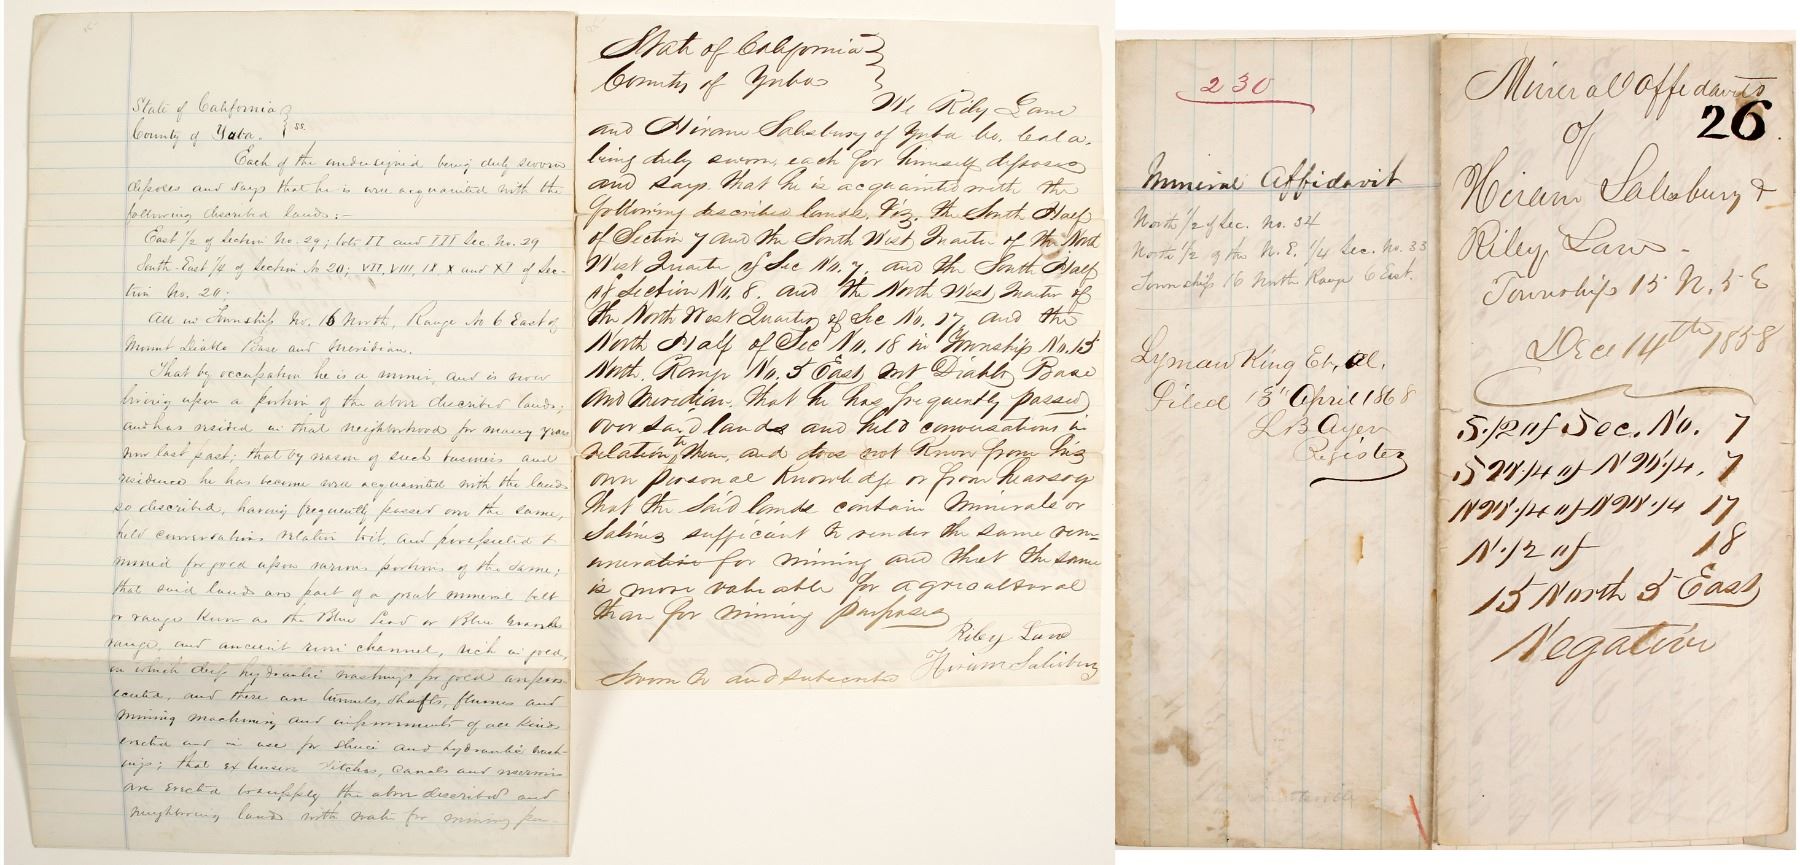 State of California }
County of Yuba. } ss.
Each of the undersigned being duly sworn
deposes and says that he is well acquainted with the
following described lands:—
East 1/2 of Section No. 29; lots II and III Sec. No. 29
South-East 1/4 of Section No 20; VII, VIII, IX X and XI of Sec-
tion No. 20.
All in Township No. 16 North, Range No 6 East of
Mount Diablo Base and Meridian.
That by occupation he is a miner, and is now
living upon a portion of the above described lands;
and has resided in that neighborhood for many years
now last past; that by reason of such business and
residence he has become well acquainted with the lands
so described, having frequently passed over the same,
held conversations relative to it, and prospected &
mined for gold upon various portions of the same;
that said lands are part of a great mineral belt
or range known as the Blue Lead or Blue Gravel
range, and ancient river channel, rich in gold,
in which deep hydraulic washings for gold are pros-
ecuted, and there are tunnels, shafts, flumes and
mining machinery and improvements of all kinds
erected and in use for sluice and hydraulic wash-
ings; that extensive ditches, canals and reservoirs
are erected to supply the above described and
neighboring lands with water for mining pur-
State of California }
County of Yuba }
We Riley Lane
and Hiram Salisbury of Yuba Co. Cala.
being duly sworn, each for himself deposes
and says. that he is acquainted with the
following described lands, viz. the South Half
of Section 7 and the South West Quarter of the North
West Quarter of Sec No. 7. and the South Half
of Section No. 8. and the North West Quarter of
the North West Quarter of Sec No. 17 and the
North Half of Sec No. 18 in Township No. 15
North, Range No. 5 East, Mt Diablo Base
and Meridian. that he has frequently passed
over said lands and held conversations in
relation to them, and does not know from his
own personal knowledge or from hearsay
that the said lands contain minerals or
Salines sufficient to render the same rem-
unerative for mining and that the same
is more valuable for agricultural
than for mining purposes
Riley Lane
Hiram Salisbury
Sworn to and subscribed
230
Mineral Affidavit
North 1/2 of Sec. No. 34
North 1/2 of the N. E. 1/4 Sec. No. 33
Township 16 North Range 6 East.
Lyman King Et. al.
Filed 13th April 1868
L B Ayer
Register
Mineral Affidavits
26
of
Hiram Salisbury &
Riley Lane -
Township 15 N. 5 E
Dec 14th 1858
S. 1/2 of Sec. No. 7
S W. 1/4 of N W. 1/4. 7
N W. 1/4 of N W. 1/4 17
N. 1/2 of 18
15 North 5 East
Negative